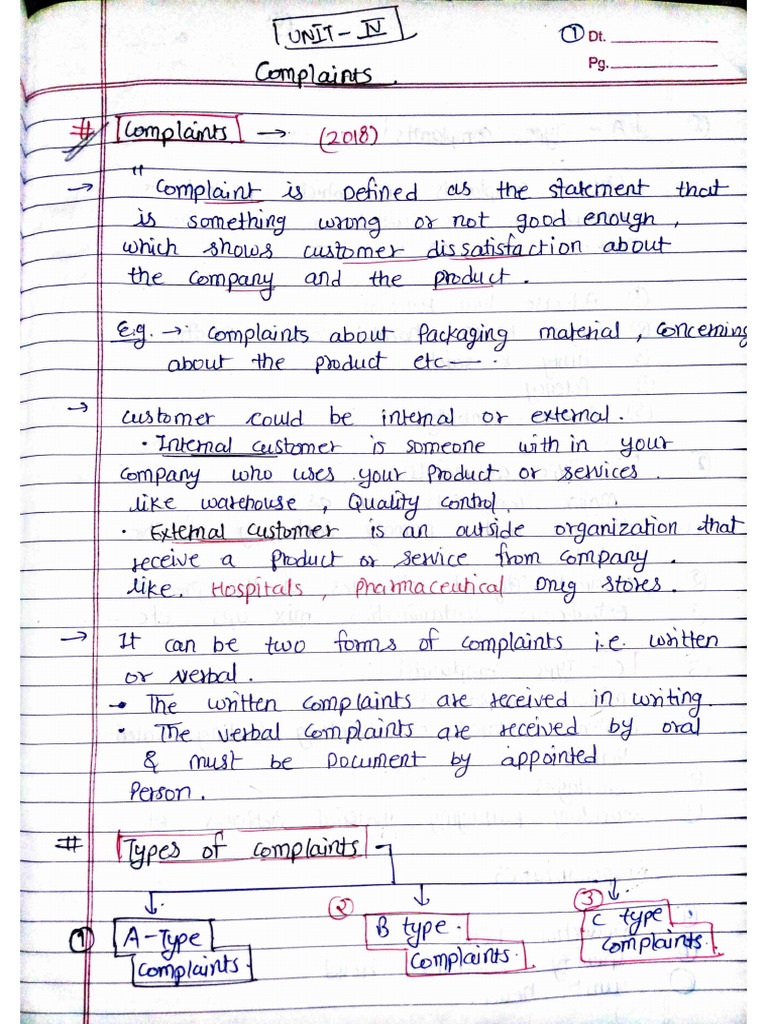 UNIT - IV
① Dt.
Pg.
Complaints.
# Complaints → (2018)
→ "Complaint is Defined as the statement that
is something wrong or not good enough,
which shows customer dissatisfaction about
the company and the product.
E.g. → Complaints about Packaging material, Concerning
about the product etc—.
→ customer could be internal or external.
• Internal customer is someone with in your
company who uses your Product or services.
like warehouse, Quality control.
• External Customer is an outside organization that
receive a Product or service from company.
like. Hospitals, Pharmaceutical Drug stores.
→ It can be two forms of complaints i.e. written
or verbal.
• The written complaints are received in writing.
• The verbal complaints are received by oral
& must be Document by appointed
Person.
# Types of complaints
① A-Type complaints.
② B type. complaints.
③ C type complaints.